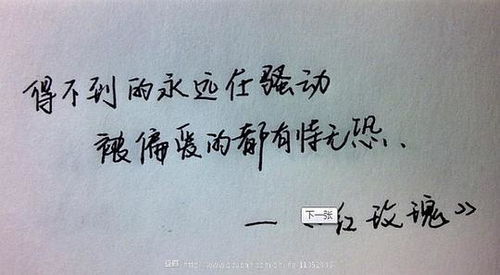 得不到的永远在骚动
被偏爱的都有恃无恐.
—— 红玫瑰》
下一张